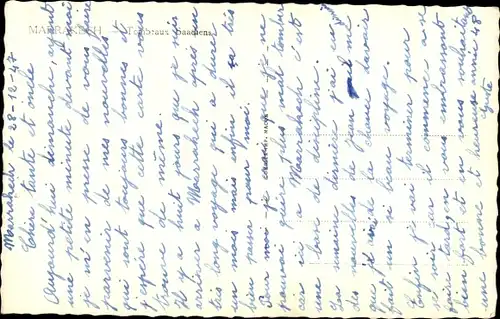 MARRAKECH — Tombeaux Saadiens
Marrakech le 28-12-47
Chère tante et oncle
Aujourd'hui dimanche, ayant
une petite minute devant moi
je m'en prene de vous faire
parvenir de mes nouvelles
qui sont toujours bonnes et
j'espère que cette carte vous
trouve de même.
Il y huit jours que je suis
arriver a Marrakech après un
très long voyage qui a duré
un mois mais enfin il a très
bien passer pour moi
Pour moi je crois que je ne
pouvai guère plus mal tomber
car ici a Marrakech c'est
une de discipline.
Ces jours dernier j'ai eu
des nouvelles de Jean il m'
que je de la chance d'avoir
fait un si beau voyage.
Enfin je vai terminer pour
je voi car il commence a se
faire tard en vous embrassant
bien fort et en vous souhaitant
une bonne et heureuse année 48